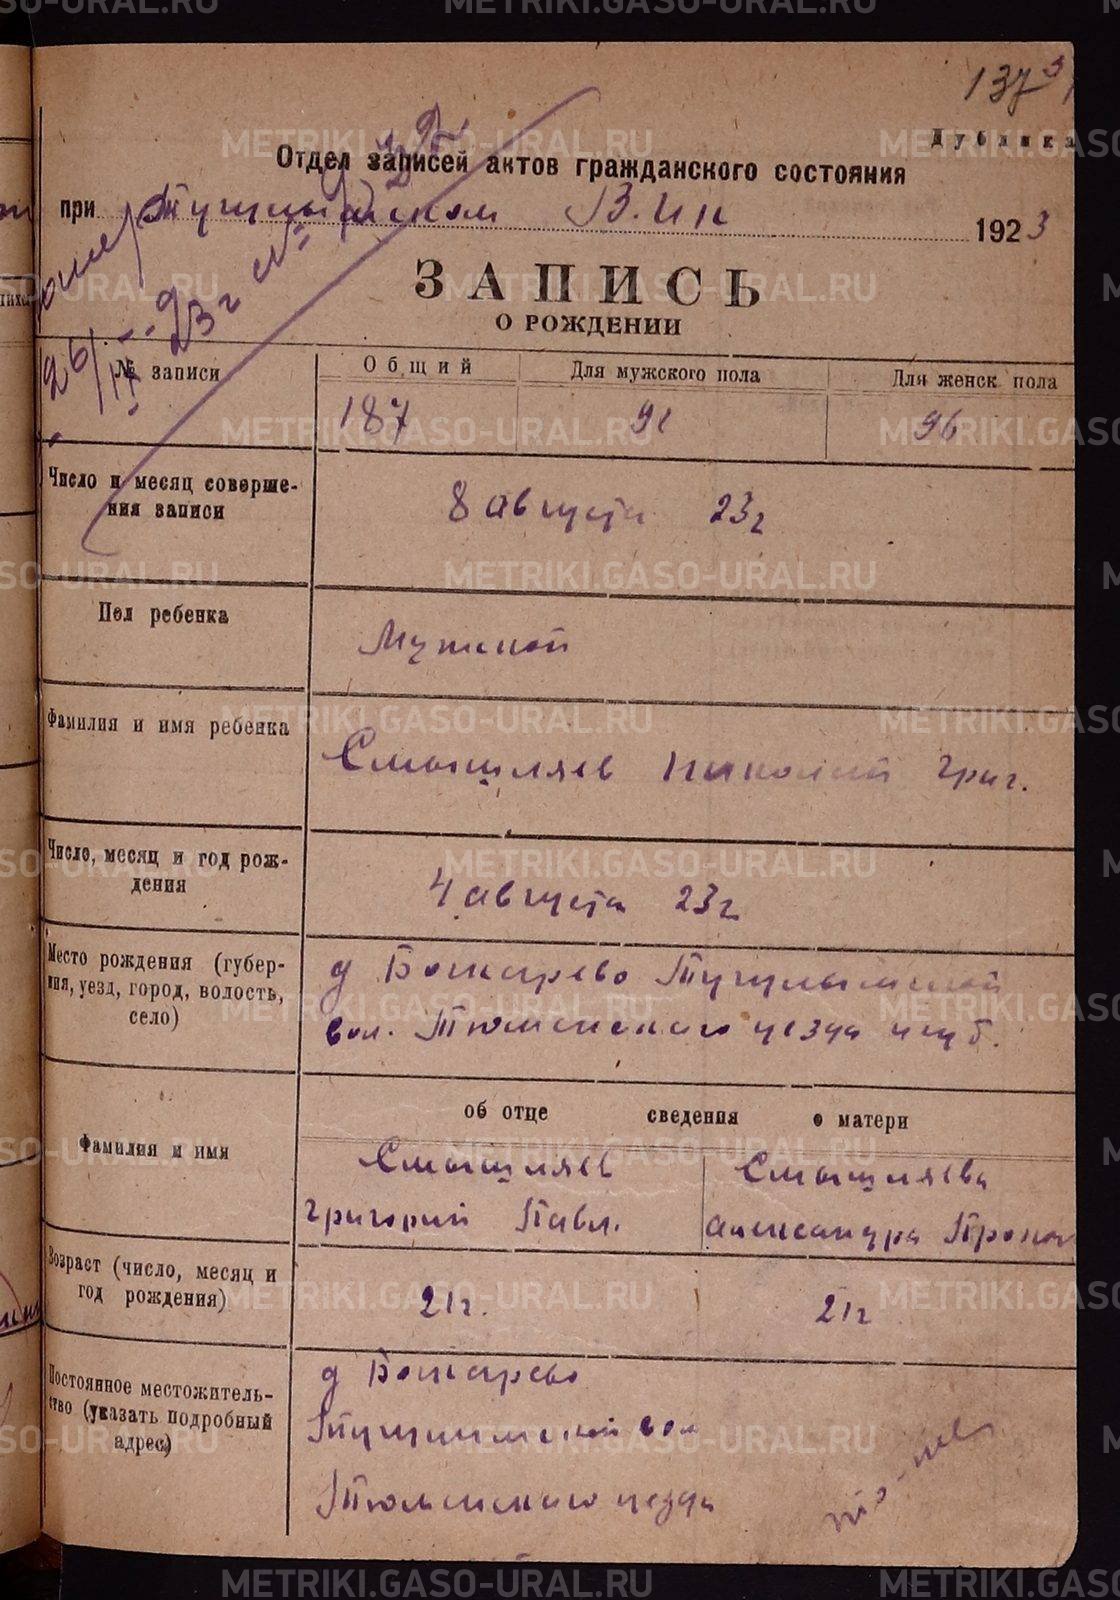 137
Дублика
Отдел записей актов гражданского состояния
при Тугулымском В.И.К 1923
ЗАПИСЬ
О РОЖДЕНИИ
26/IX - 23г №
№ записи
Общий
Для мужского пола
Для женск. пола
187
91
96
Число и месяц соверше-
ния записи
8 августа 23г
Пол ребенка
Мужской
Фамилия и имя ребенка
Смышляев Николай Григ.
Число, месяц и год рож-
дения
4 августа 23г
Место рождения (губер-
ния, уезд, город, волость,
село)
д Бошкарево Тугулымской
вол. Тюменского уезда и губ.
об отце сведения о матери
Фамилия и имя
Смышляев
Григорий Павл.
Смышляева
Александра Прокоп
Возраст (число, месяц и
год рождения)
21г.
21г
Постоянное местожитель-
ство (указать подробный
адрес)
д Бошкарево
Тугулымской вол
Тюменского уезда
METRIKI.GASO-URAL.RU